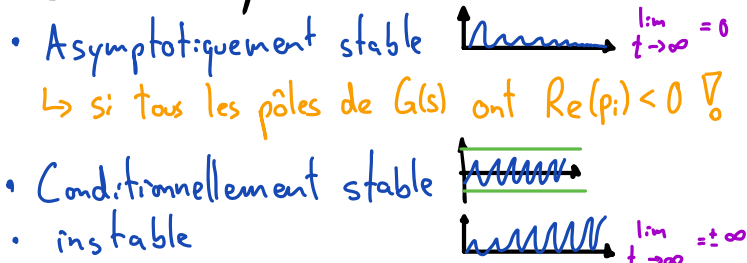 • Asymptotiquement stable lim t→∞ = 0
↳ si tous les pôles de G(s) ont Re(pi) < 0 !
• Conditionnellement stable
• instable lim t→∞ = ± ∞